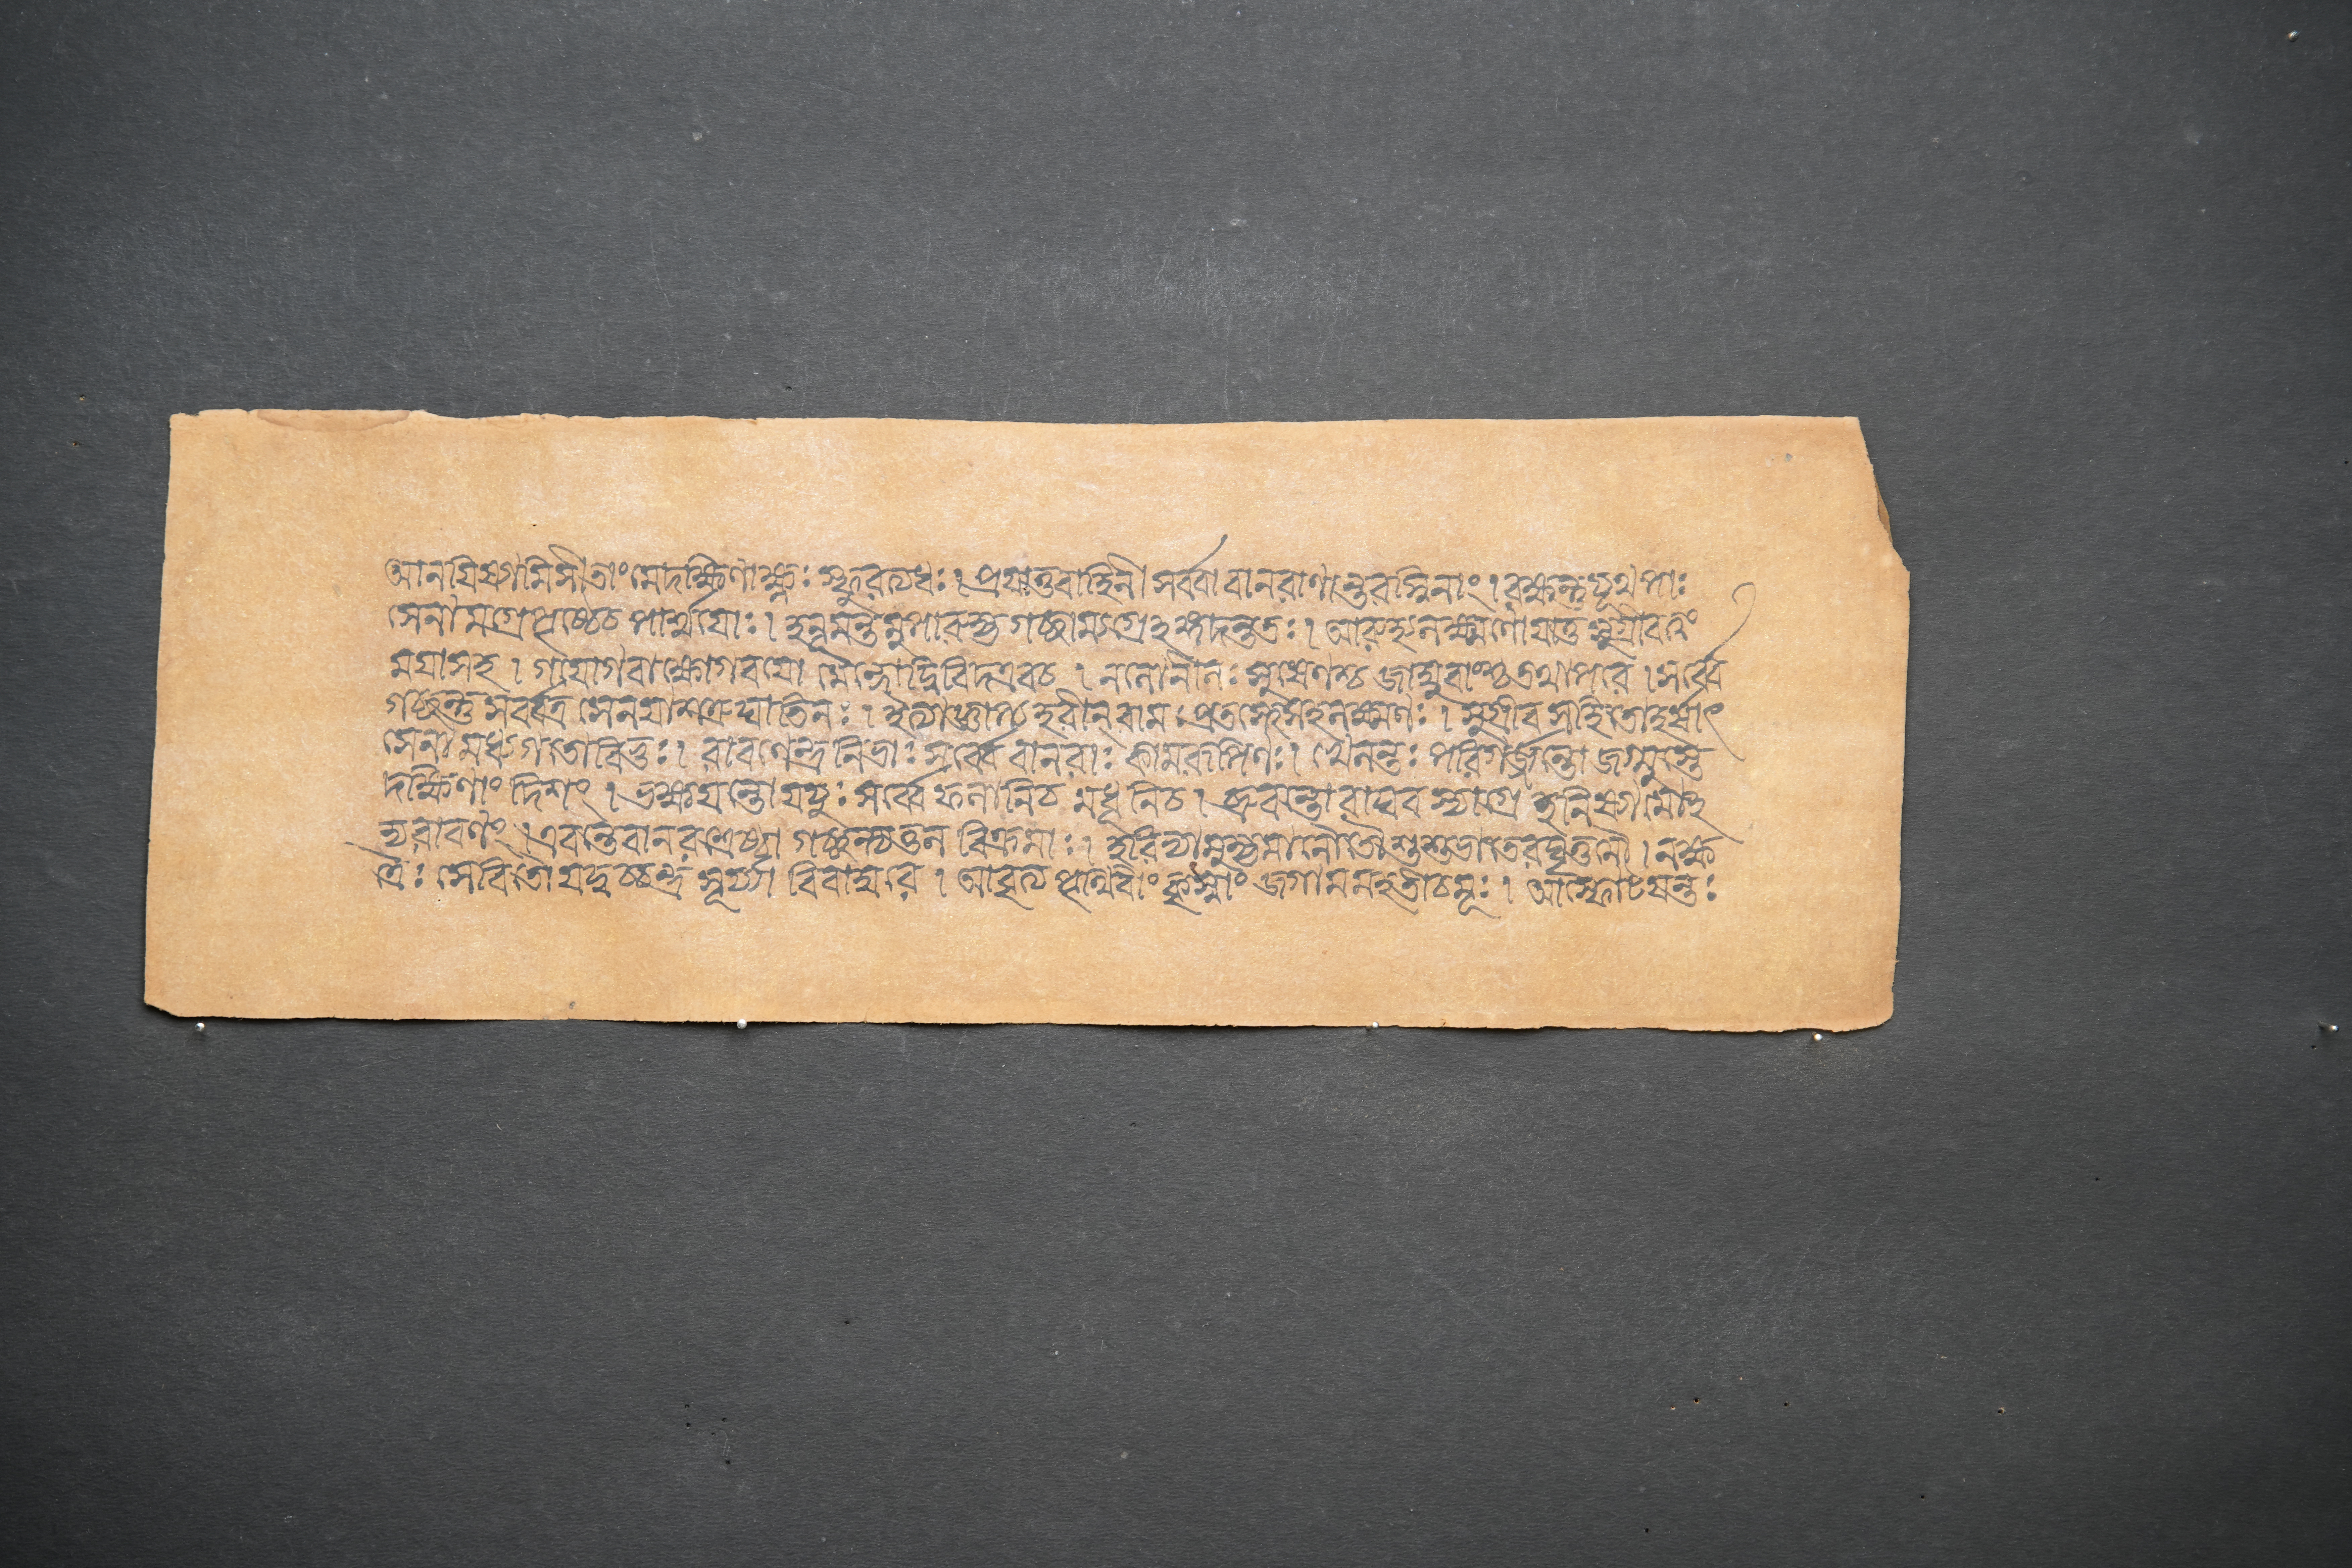 আনয়িষ্যামি সীতাং মে দক্ষিণাক্ষ্ণঃ স্ফুরত্যধঃ। প্রয়াতু বাহিনী সর্ব্বা বানরাণান্তরস্বিনাং। রক্ষন্তু যূথপাঃ
সেনামগ্রে পৃষ্ঠে চ পার্শ্বয়োঃ। হনূমন্তমুপারুহ্য গচ্ছাম্যগ্রেঽঙ্গদন্ততঃ। আরুহ্য লক্ষ্মণো যাতু সুগ্রীব ত্বং
ময়া সহ। গয়ো গবাক্ষো গবয়ো মৈন্দো দ্বিবিদ এব চ। নলো নীলঃ সুষেণশ্চ জাম্ববাংশ্চ তথাপরে। সর্ব্বে
গচ্ছন্তু সর্ব্বত্র সেনয়া শত্রুঘাতিনঃ। ইত্যাজ্ঞাপ্য হরীন্ রামঃ প্রতস্থে সহলক্ষ্মণঃ। সুগ্রীবসহিতো হর্ষাৎ
সেনামধ্যগতো বিভুঃ। রাবণেন্দ্রনিভাঃ সর্ব্বে বানরাঃ কামরূপিণঃ। ক্ষ্বেলন্তঃ পরিগর্জ্জন্তো জগ্মুস্তে
দক্ষিণাং দিশং। ভক্ষয়ন্তো যযুঃ সর্ব্বে ফলানি চ মধূনি চ। ব্রুবন্তো রাঘবস্যাগ্রে হনিষ্যামোঽ
দ্য রাবণং। এবন্তে বানরশ্রেষ্ঠা গচ্ছন্ত্যতুলবিক্রমাঃ। হরিভ্যামুহ্যমানৌ তৌ শুশুভাতে রঘূত্তমৌ। নক্ষ
ত্রৈঃ সেবিতৌ যদ্বচ্চন্দ্রসূর্য্যাবিবাম্বরে। আবৃত্য পৃথিবীং কৃৎস্নাং জগাম মহতী চমূঃ। আস্ফোটয়ন্তঃ